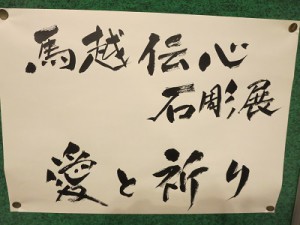 馬越伝心
石彫展
愛と祈り